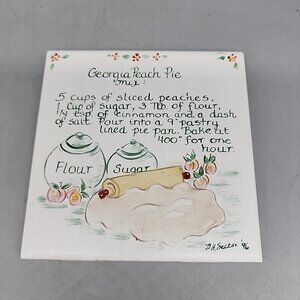 Georgia Peach Pie
mix:
5 cups of sliced peaches,
1 Cup of sugar, 3 Tb of flour,
1/4 tsp. of cinnamon and a dash
of salt. Pour into a 9" pastry
lined pie pan. Bake at
400° for one
hour.
Flour
Sugar
'96